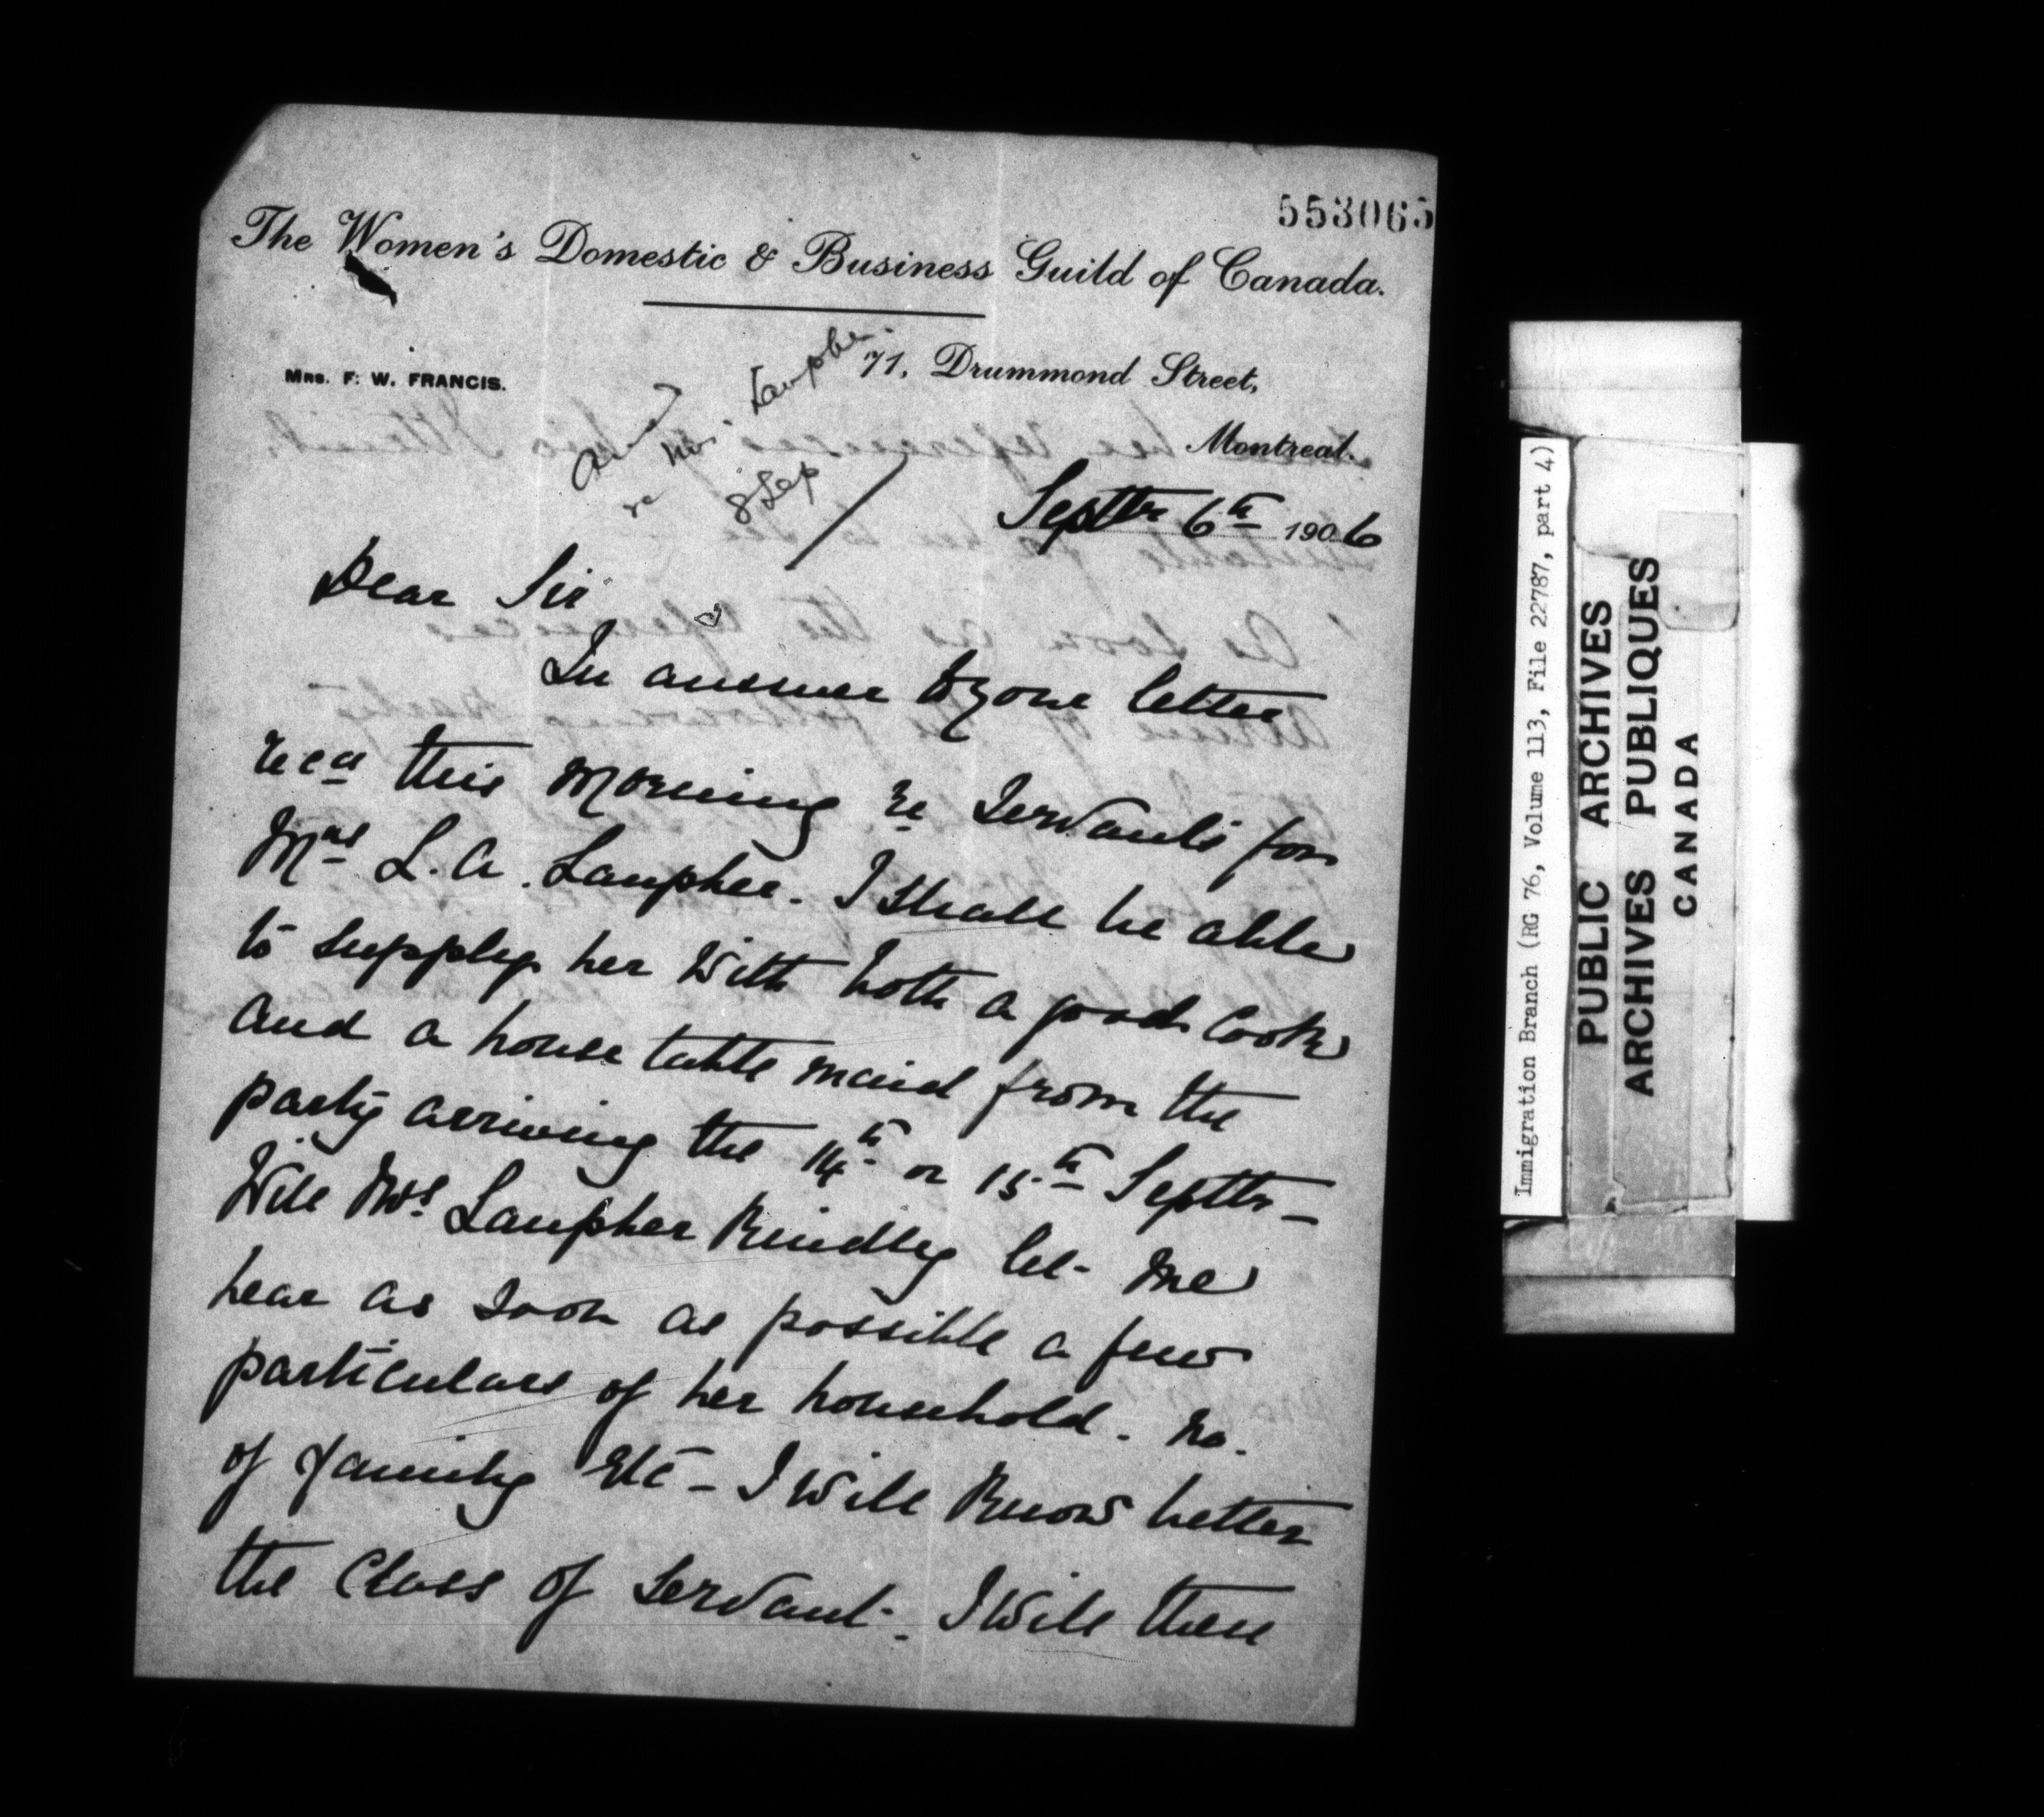 553065
The Women's Domestic & Business Guild of Canada.
Mrs. F. W. FRANCIS.
71, Drummond Street,
Montreal.
re Mrs. Lanpher
8 Sep
Septbr 6th 1906
Dear Sir
In answer to your letter
recd this morning re Servants for
Mrs L. A. Lanpher. I shall be able
to supply her with both a good Cook
and a house table maid from the
party arriving the 14th or 15th Septbr -
Will Mrs Lanpher kindly let me
hear as soon as possible a few
particulars of her household. no.
of family etc - I will know better
the Class of servant. I will then
Immigration Branch (RG 76, Volume 113, File 22787, part 4)
PUBLIC ARCHIVES
ARCHIVES PUBLIQUES
CANADA